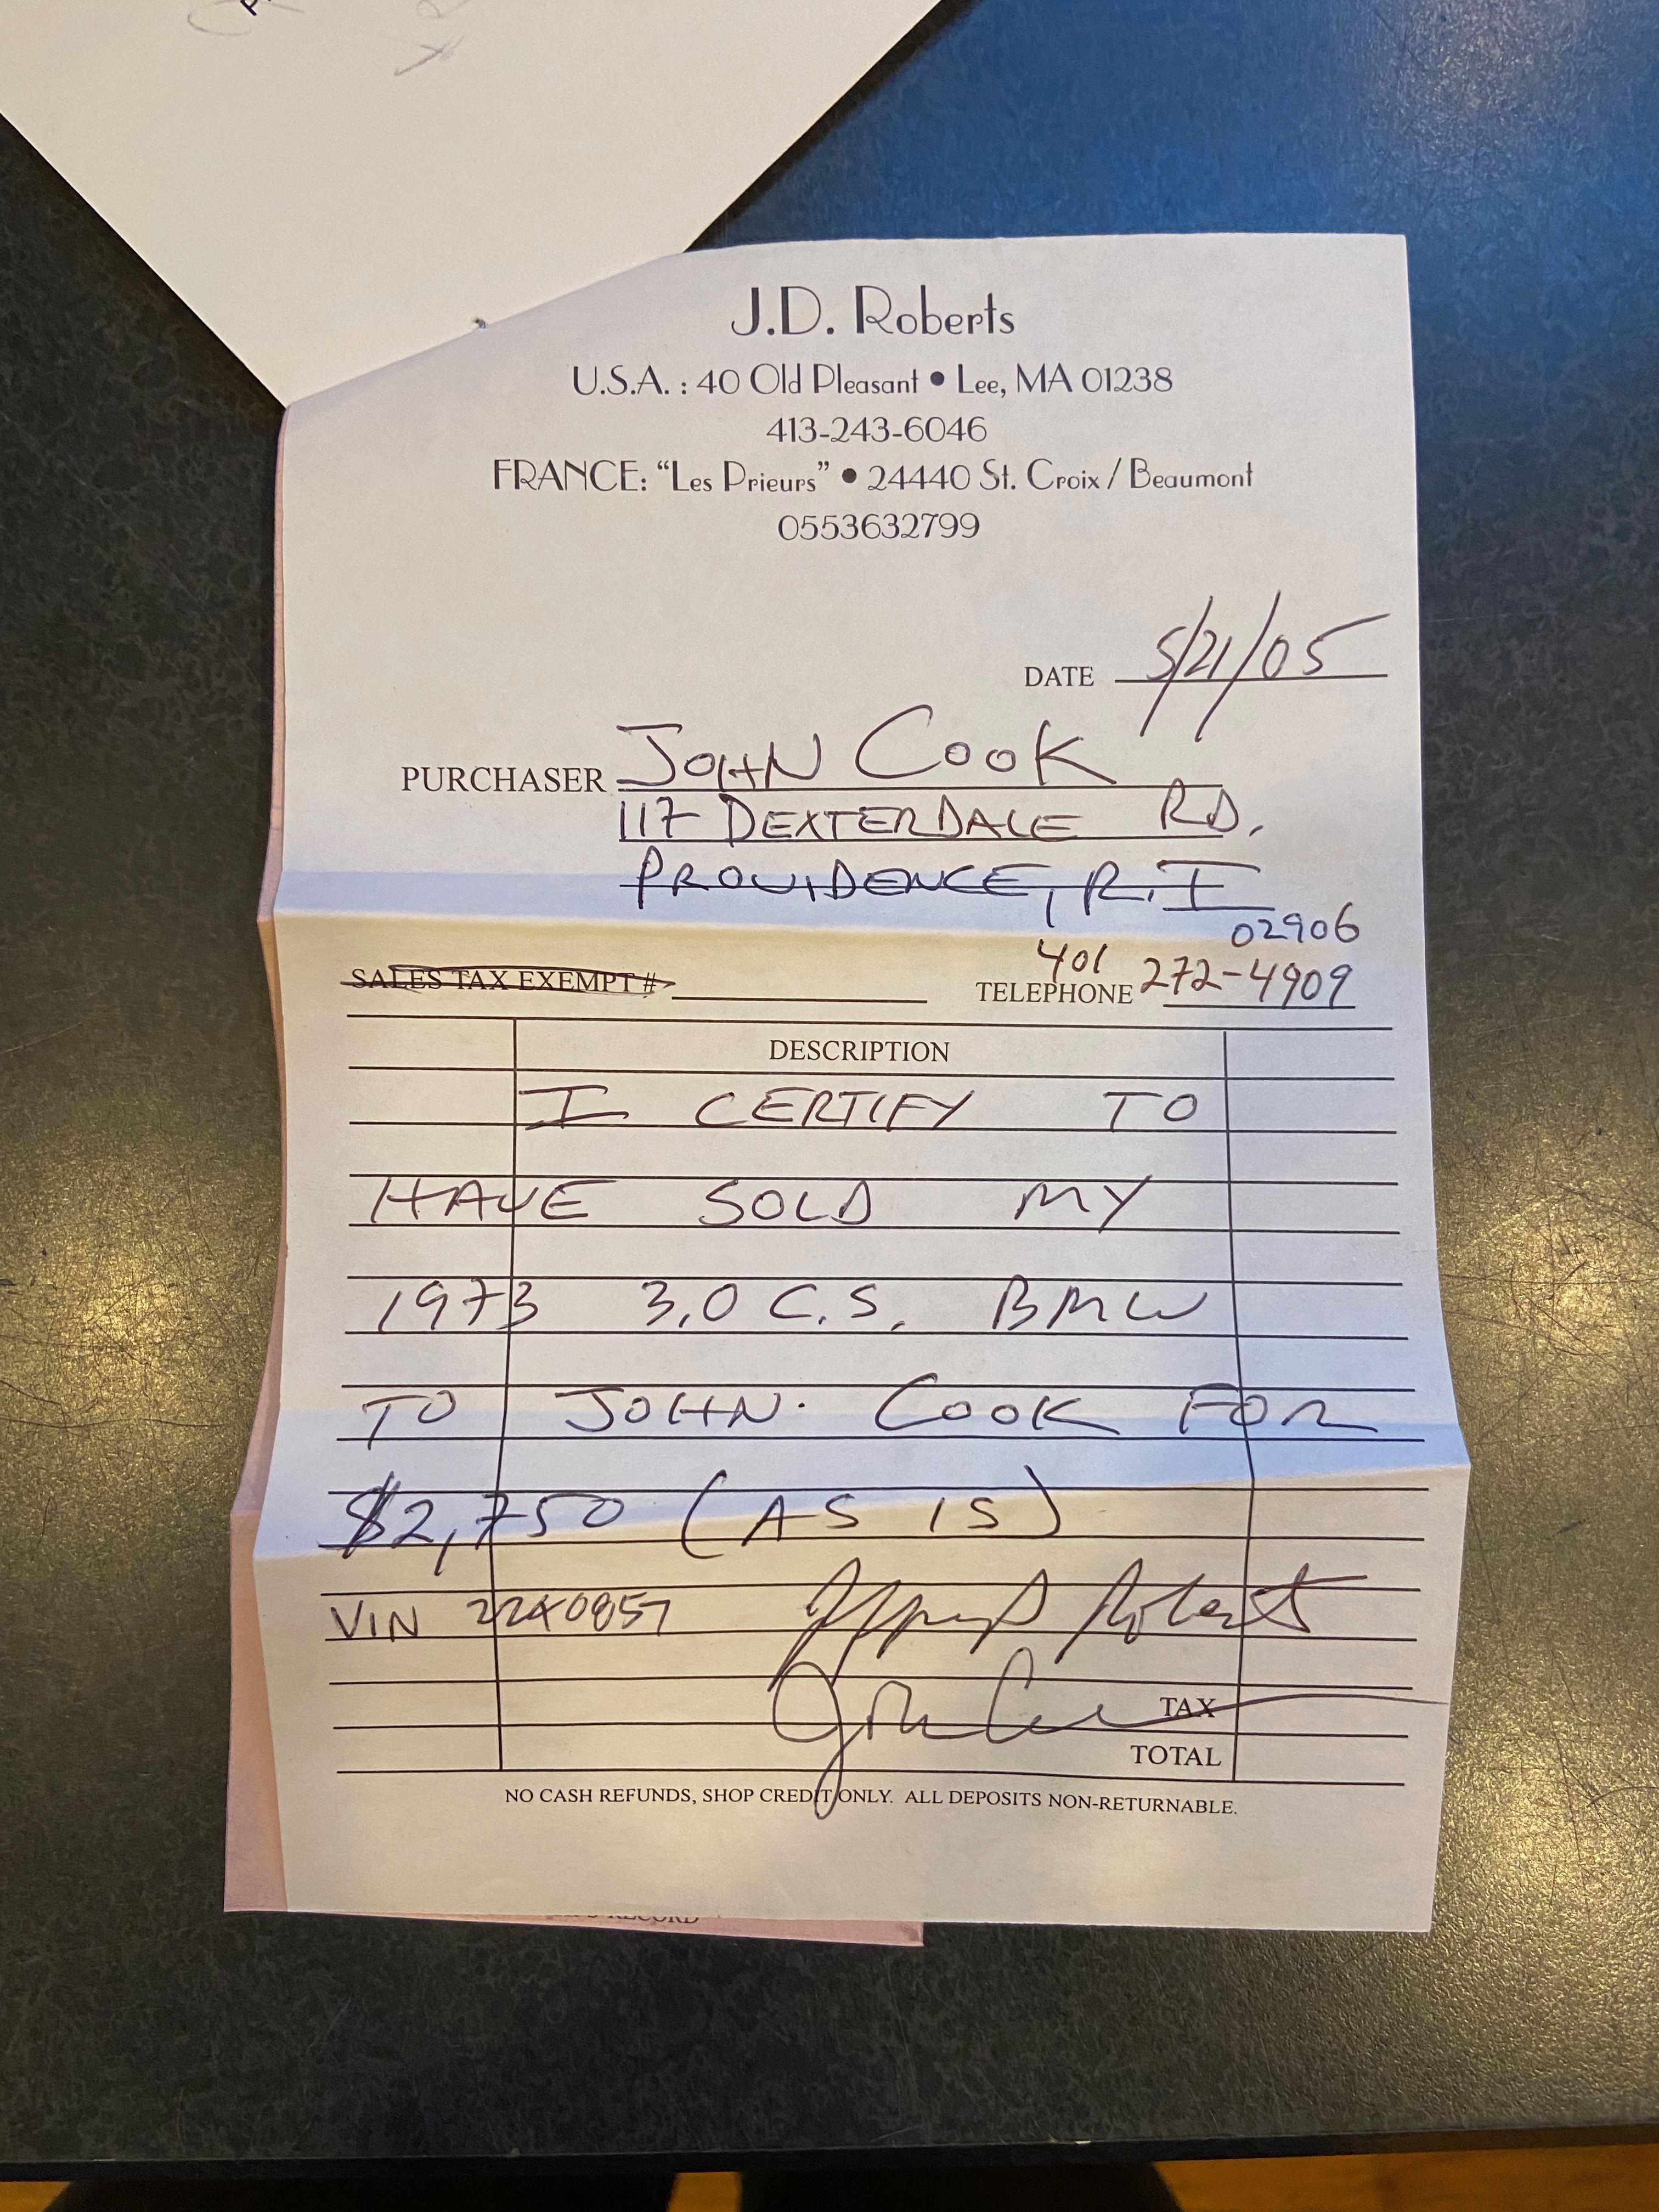 J.D. Roberts
U.S.A. : 40 Old Pleasant • Lee, MA 01238
413-243-6046
FRANCE: “Les Prieurs” • 24440 St. Croix / Beaumont
0553632799
DATE 5/21/05
PURCHASER JOHN COOK
117 DEXTERDALE RD.
PROVIDENCE, R.I
02906
SALES TAX EXEMPT # TELEPHONE 401 272-4909
DESCRIPTION
I CERTIFY TO
HAVE SOLD MY
1973 3.0 C.S. BMW
TO JOHN. COOK FOR
$2,750 (AS IS)
VIN 2240857 Roberts
John TAX
TOTAL
NO CASH REFUNDS, SHOP CREDIT ONLY. ALL DEPOSITS NON-RETURNABLE.
RECORD